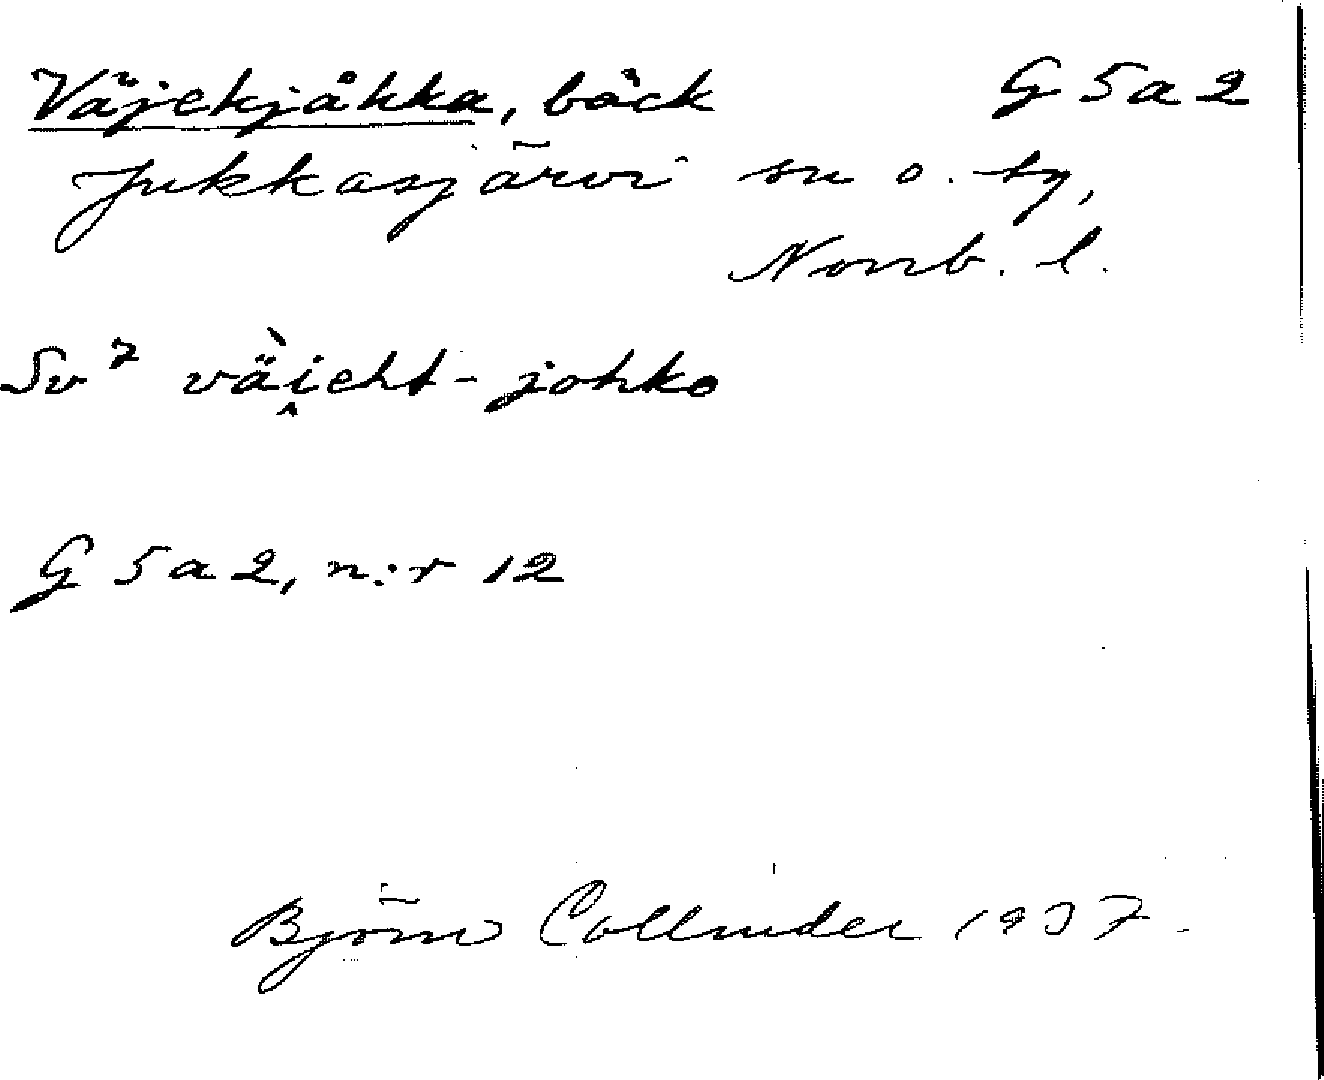 Väjekjåkka, bäck G 5 a 2
Jukkasjärvi sn o. tg,
Norrb. l.
Sv⁷ vä̀i̭eht-johko
G 5 a 2, n:r 12
Björn Collinder 1937.